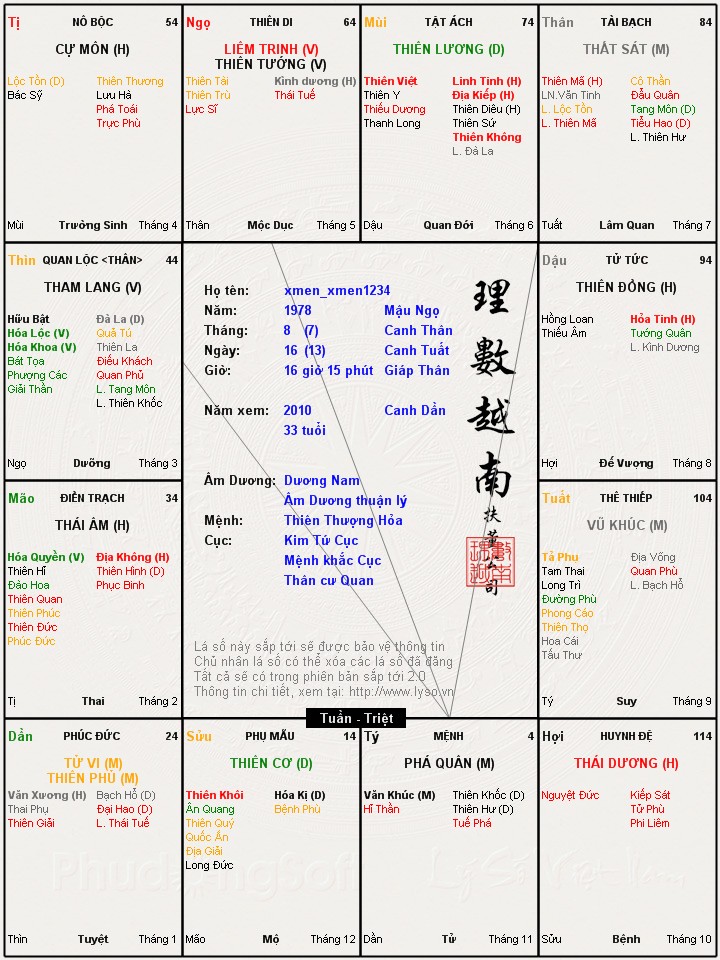 Tị NÔ BỘC 54
CỰ MÔN (H)
Lộc Tồn (D) Thiên Thương
Bác Sỹ Lưu Hà
Phá Toái
Trực Phù
Mùi Trưởng Sinh Tháng 4
Ngọ THIÊN DI 64
LIÊM TRINH (V)
THIÊN TƯỚNG (V)
Thiên Tài Kình dương (H)
Thiên Trù Thái Tuế
Lực Sĩ
Thân Mộc Dục Tháng 5
Mùi TẬT ÁCH 74
THIÊN LƯƠNG (D)
Thiên Việt Linh Tinh (H)
Thiên Y Địa Kiếp (H)
Thiếu Dương Thiên Diêu (H)
Thanh Long Thiên Sứ
Thiên Không
L. Đà La
Dậu Quan Đới Tháng 6
Thân TÀI BẠCH 84
THẤT SÁT (M)
Thiên Mã (H) Cô Thần
LN.Văn Tinh Đẩu Quân
L. Lộc Tồn Tang Môn (D)
L. Thiên Mã Tiểu Hao (D)
L. Thiên Hư
Tuất Lâm Quan Tháng 7
Thìn QUAN LỘC <THÂN> 44
THAM LANG (V)
Hữu Bật Đà La (D)
Hóa Lộc (V) Quả Tú
Hóa Khoa (V) Thiên La
Bát Tọa Điếu Khách
Phượng Các Quan Phủ
Giải Thần L. Tang Môn
L. Thiên Khốc
Ngọ Dưỡng Tháng 3
Họ tên: xmen_xmen1234
Năm: 1978 Mậu Ngọ
Tháng: 8 (7) Canh Thân
Ngày: 16 (13) Canh Tuất
Giờ: 16 giờ 15 phút Giáp Thân
Năm xem: 2010 Canh Dần
33 tuổi
Âm Dương: Dương Nam
Âm Dương thuận lý
Mệnh: Thiên Thượng Hỏa
Cục: Kim Tứ Cục
Mệnh khắc Cục
Thân cư Quan
理數越南
扶董公司
Lá số này sắp tới sẽ được bảo vệ thông tin
Chủ nhân lá số có thể xóa các lá số đã đăng
Tất cả sẽ có trong phiên bản sắp tới 2.0
Thông tin chi tiết, xem tại: http://www.lyso.vn
Tuần - Triệt
Dậu TỬ TỨC 94
THIÊN ĐỒNG (H)
Hồng Loan Hỏa Tinh (H)
Thiếu Âm Tướng Quân
L. Kình Dương
Hợi Đế Vượng Tháng 8
Mão ĐIỀN TRẠCH 34
THÁI ÂM (H)
Hóa Quyền (V) Địa Không (H)
Thiên Hỉ Thiên Hình (D)
Đào Hoa Phục Binh
Thiên Quan
Thiên Phúc
Thiên Đức
Phúc Đức
Tị Thai Tháng 2
Tuất THÊ THIẾP 104
VŨ KHÚC (M)
Tả Phụ Địa Võng
Tam Thai Quan Phù
Long Trì L. Bạch Hổ
Đường Phù
Phong Cáo
Thiên Thọ
Hoa Cái
Tấu Thư
Tý Suy Tháng 9
Dần PHÚC ĐỨC 24
TỬ VI (M)
THIÊN PHỦ (M)
Văn Xương (H) Bạch Hổ (D)
Thai Phụ Đại Hao (D)
Thiên Giải L. Thái Tuế
Thìn Tuyệt Tháng 1
Sửu PHỤ MẪU 14
THIÊN CƠ (D)
Thiên Khôi Hóa Kị (D)
Ân Quang Bệnh Phù
Thiên Quý
Quốc Ấn
Địa Giải
Long Đức
Mão Mộ Tháng 12
Tý MỆNH 4
PHÁ QUÂN (M)
Văn Khúc (M) Thiên Khốc (D)
Hỉ Thần Thiên Hư (D)
Tuế Phá
Dần Tử Tháng 11
Hợi HUYNH ĐỆ 114
THÁI DƯƠNG (H)
Nguyệt Đức Kiếp Sát
Tử Phù
Phi Liêm
Sửu Bệnh Tháng 10